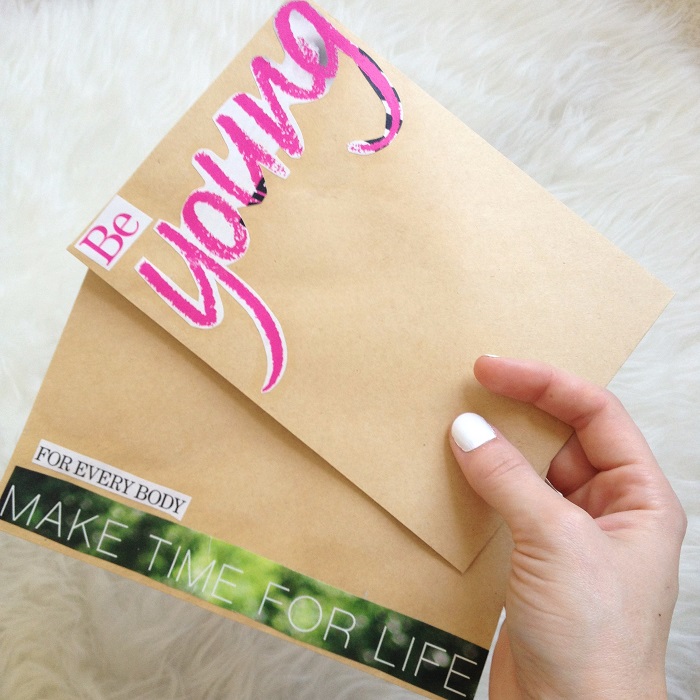 Be
young
FOR EVERY BODY
MAKE TIME FOR LIFE